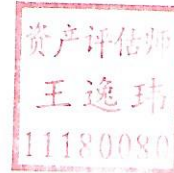 资产评估师
王逸玮
11180080